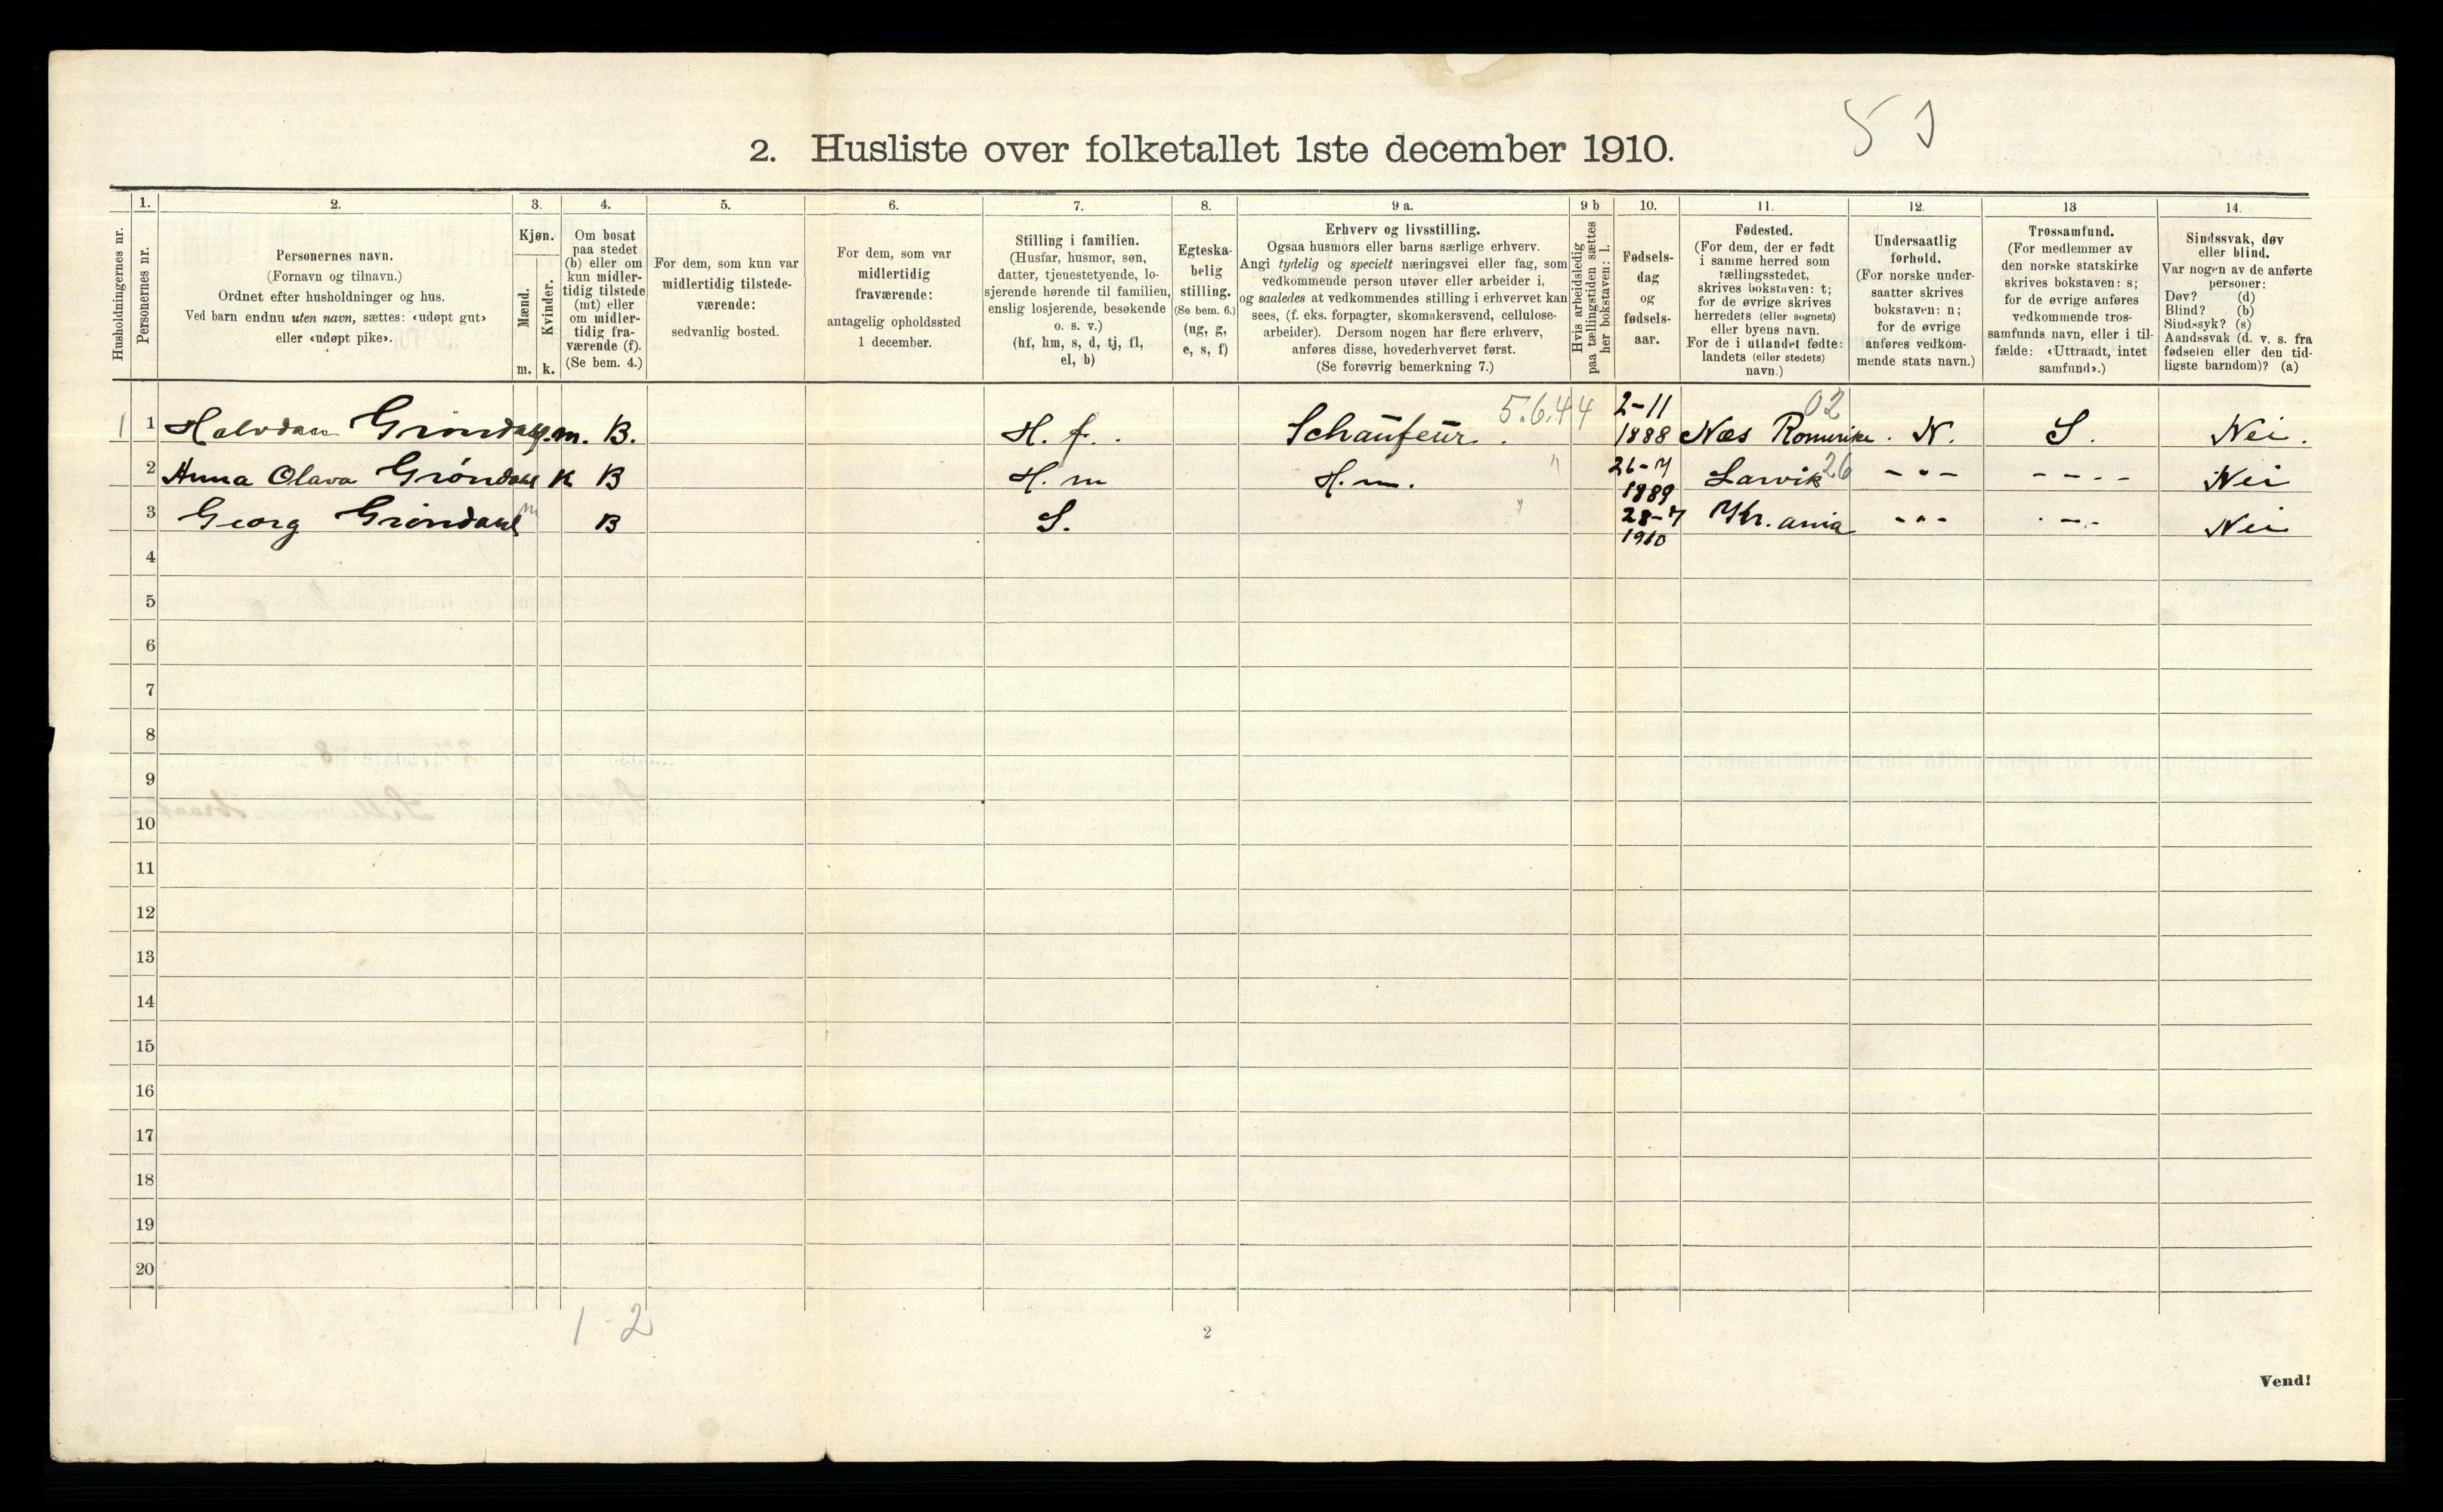 5
2. Husliste over folketallet 1ste december 1910.
Husholdningernes nr.
1.
Personernes nr.
2.
Personernes navn.
(Fornavn og tilnavn.)
Ordnet efter husholdninger og hus.
Ved barn endnu uten navn, sættes: «udøpt gut»
eller «udøpt pike».
3.
Kjøn.
Mænd.
Kvinder.
m. k.
4.
Om bosat
paa stedet
(b) eller om
kun midler-
tidig tilstede
(mt) eller
om midler-
tidig fra-
værende (f).
(Se bem. 4.)
5.
For dem, som kun var
midlertidig tilstede-
værende:
sedvanlig bosted.
6.
For dem, som var
midlertidig
fraværende:
antagelig opholdssted
1 december.
7.
Stilling i familien.
(Husfar, husmor, søn,
datter, tjenestetyende, lo-
sjerende hørende til familien,
enslig losjerende, besøkende
o. s. v.)
(hf, hm, s, d, tj, fl,
el, b)
8.
Egteska-
belig
stilling.
(Se bem. 6.)
(ug, g,
e, s, f)
9 a.
Erhverv og livsstilling.
Ogsaa husmors eller barns særlige erhverv.
Angi tydelig og specielt næringsvei eller fag, som
vedkommende person utøver eller arbeider i,
og saaledes at vedkommendes stilling i erhvervet kan
sees, (f. eks. forpagter, skomakersvend, cellulose-
arbeider). Dersom nogen har flere erhverv,
anføres disse, hovederhvervet først.
(Se forøvrig bemerkning 7.)
9 b
Hvis arbeidsledig
paa tællingstiden sættes
her bokstaven: l.
10.
Fødsels-
dag
og
fødsels-
aar.
11.
Fødested.
(For dem, der er født
i samme herred som
tællingsstedet,
skrives bokstaven: t;
for de øvrige skrives
herredets (eller sognets)
eller byens navn.
For de i utlandet fødte:
landets (eller stedets)
navn.)
12.
Undersaatlig
forhold.
(For norske under-
saatter skrives
bokstaven: n;
for de øvrige
anføres vedkom-
mende stats navn.)
13
Trossamfund.
(For medlemmer av
den norske statskirke
skrives bokstaven: s;
for de øvrige anføres
vedkommende tros-
samfunds navn, eller i til-
fælde: «Uttraadt, intet
samfund».)
14.
Sindssvak, døv
eller blind.
Var nogen av de anførte
personer:
Døv? (d)
Blind? (b)
Sindssyk? (s)
Aandssvak (d. v. s. fra
fødselen eller den tid-
ligste barndom)? (a)
1 1 Halvdan Gröndahl. m. B. H. f. Schaufeur. 5.6.44 2-11 1888 Næs Romerike. 02 N. S. Nei.
2 Anna Olava Gröndahl K B H. m H. m. " 26-7 1889 Larvik 26 - " - - - - - Nei
3 Georg Gröndahl m B S. " 28-7 1910 Kr.ania - " - - - - Nei
4
5
6
7
8
9
10
11
12
13
14
15
16
17
18
19
20
1 - 2
2
Vend!